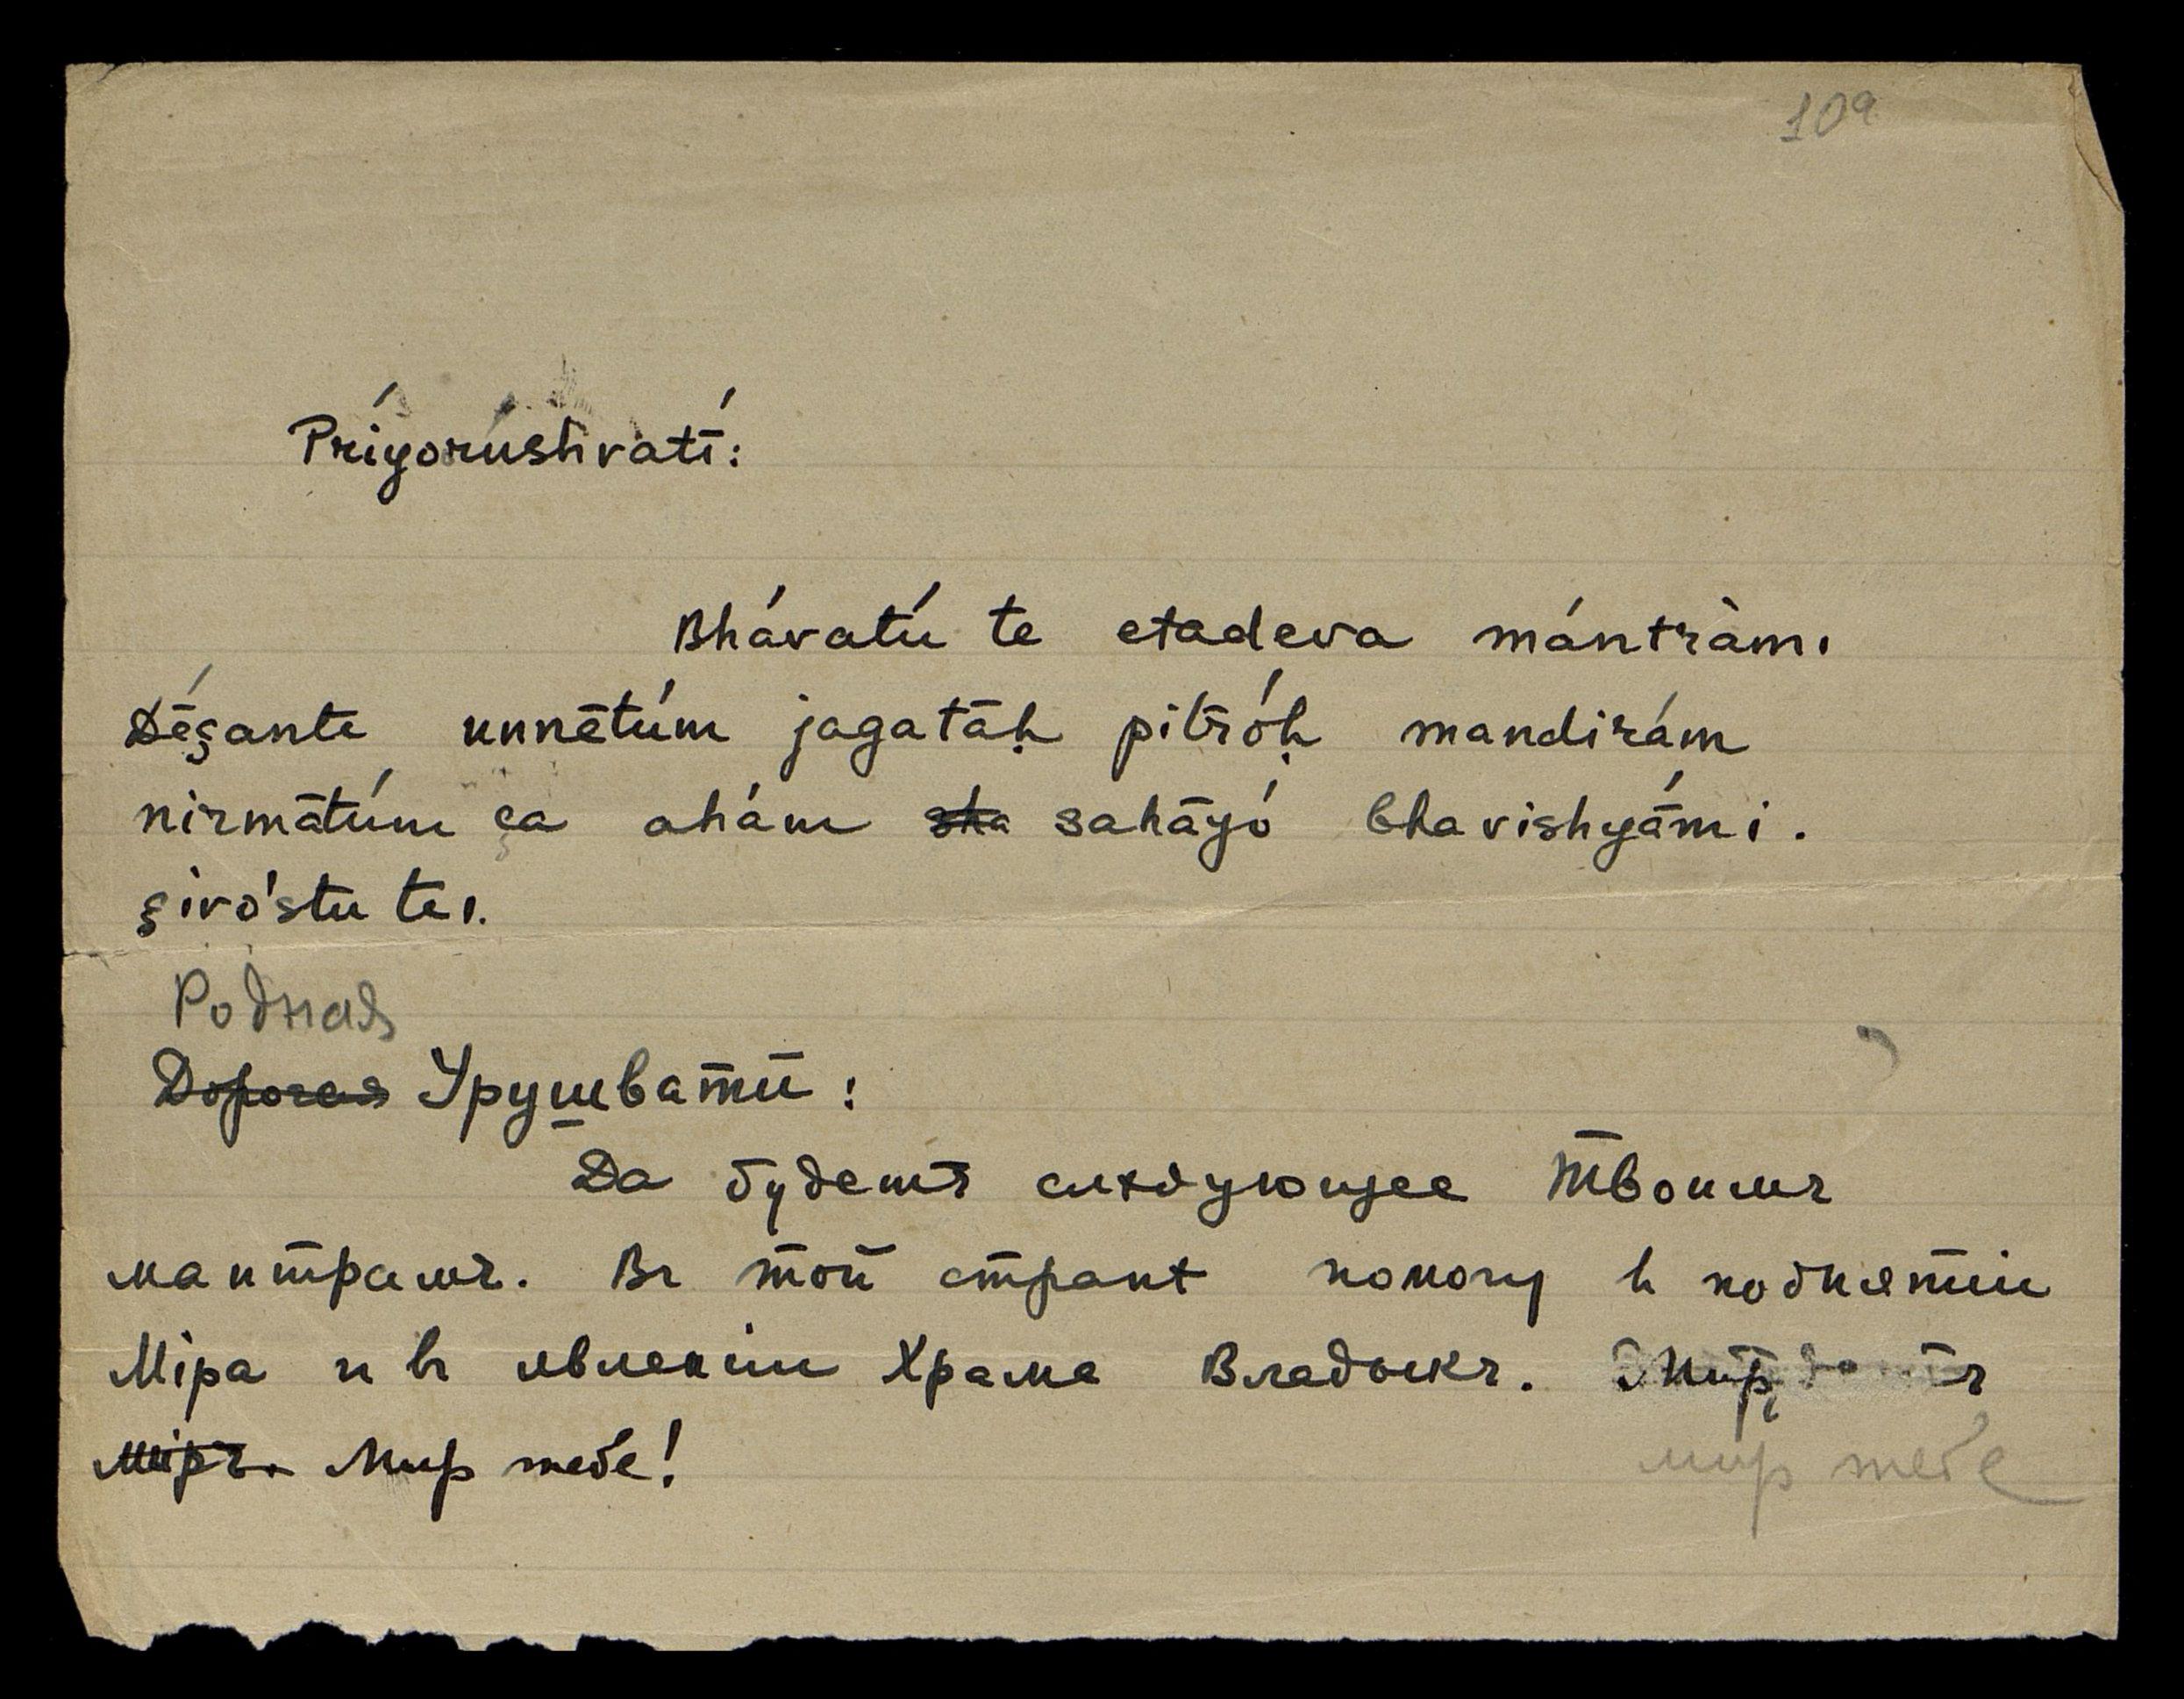 109
Príyorúshvatī́:
Bhávatú te etadeva mántràm.
Dḗşante unnētúm jagatāḥ pitróḥ mandirám
nirmātúm ça ahám sahāyó bhavishyā́mi.
şivó'stu te.
Родная
Дорогая Урушвати:
Да будетъ слѣдующее Твоимъ
мантрамъ. Въ той странѣ помогу в поднятіи
Міра и въ явленіи Храма Владыкъ. Мир
Миръ. Мир тебе!
мир тебе